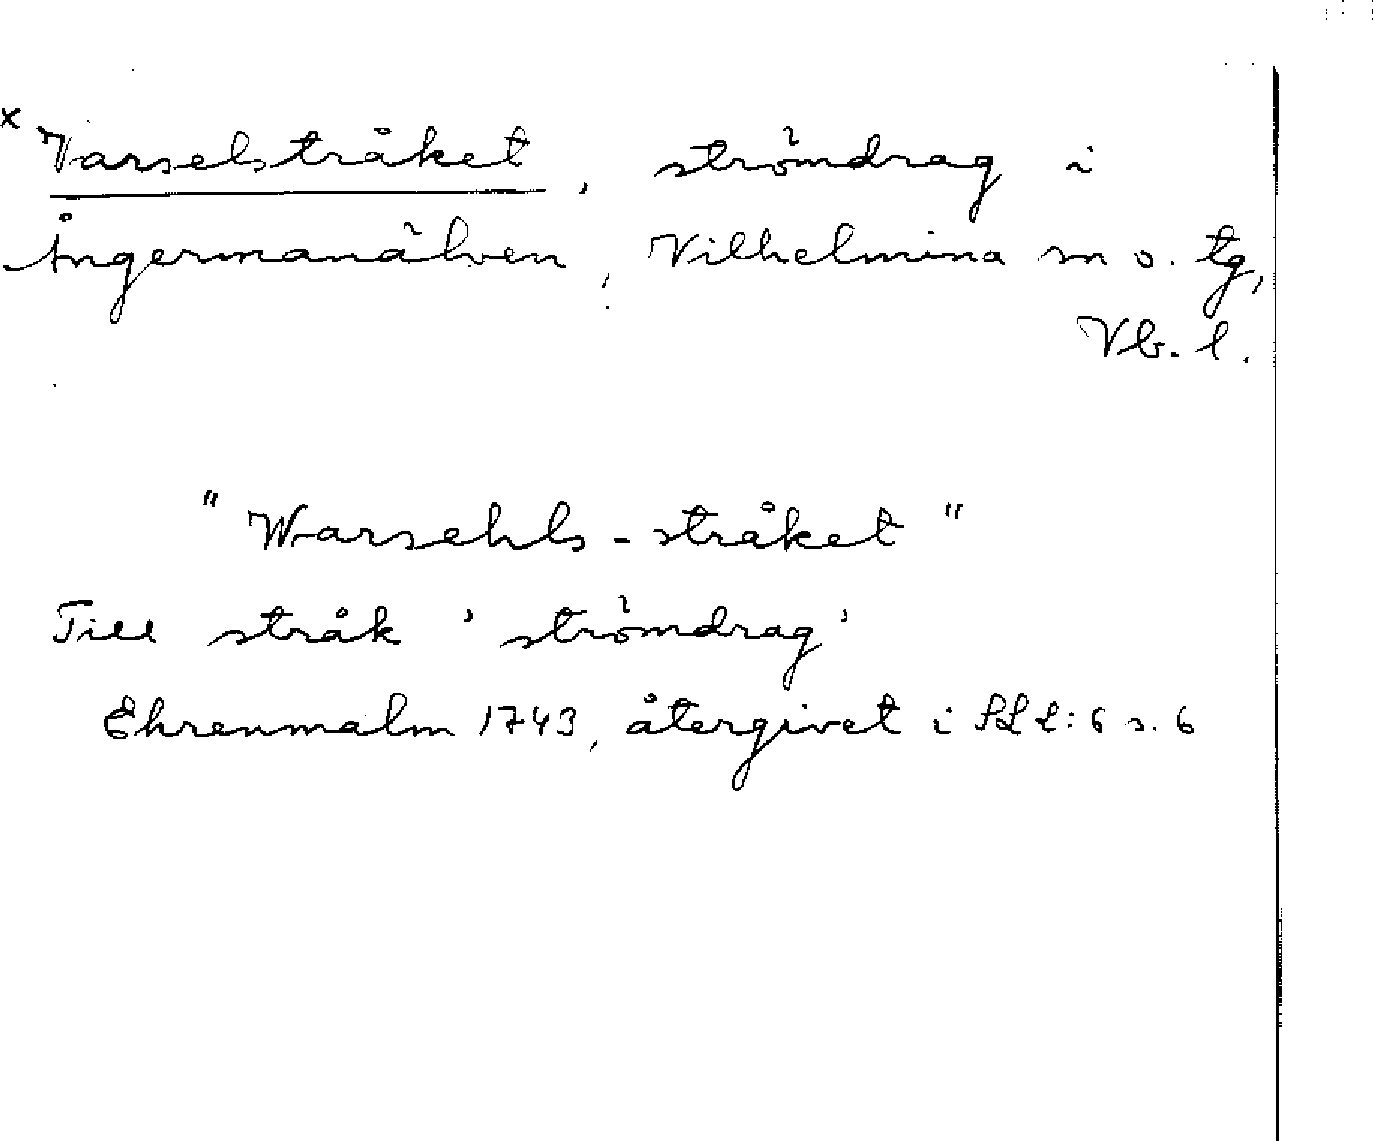 x Varselstråket, strömdrag i
Ångermanälven, Vilhelmina sn o. tg,
Vb. l.
"Warsehls-stråket"
Till stråk 'strömdrag'
Ehrenmalm 1743, återgivet i : 6 s. 6